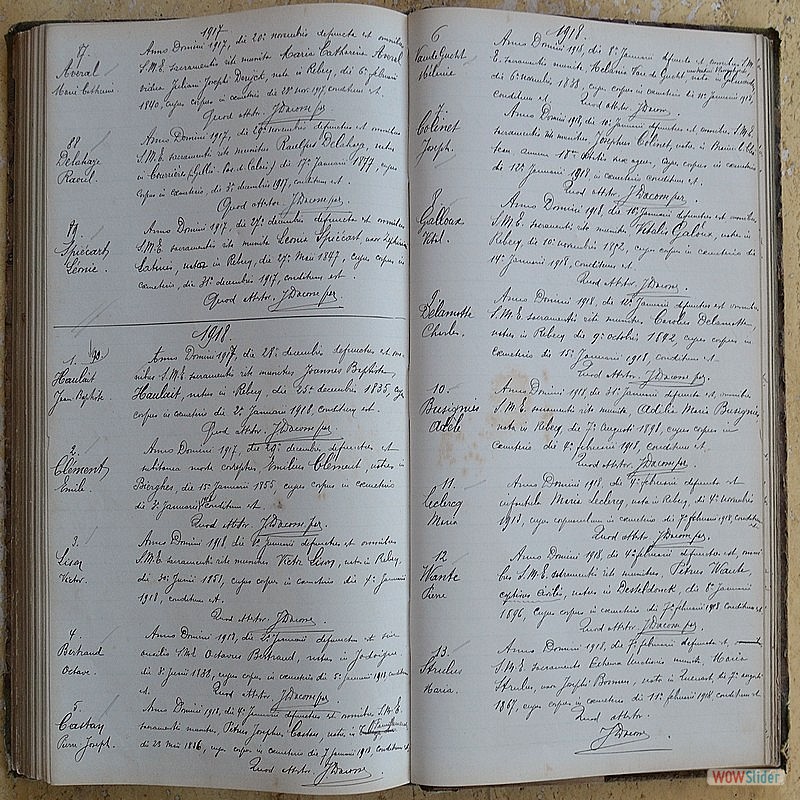 1917
87
Averal
Marie Catherine
Anno Domini 1917, die 20a novembris defuncta est omnibus
S.M.E. sacramentis rite munita Maria Catharina Averal
vidua Juliani Joseph nata in Rebecq, die 6a februarii
1840, cujus corpus in cœmeterio die 23a novembris 1917, conditum est.
Quod attstor. J Dacom per.
88
Delehaye
Raoul.
Anno Domini 1917, die 29a novembris defunctus est omnibus
S.M.E. sacramentis rite munitus natus
in (Pas de Calais) die 17a Januarii 1877, cujus
corpus in cœmeterio, die 3a decembris 1917, conditum est.
Quod attstor. J Dacom per.
89.
Spiécart
Léonie.
Anno Domini 1917, die 27a decembris defuncta est omnibus
S.M.E. sacramentis rite munita Leonie Spiécart, uxor
nata in Rebecq, die 27a Maii 1847, cujus corpus in
cœmeterio, die 31a decembris 1917, conditum est.
Quod attstor. J Dacom per.
1918
1.
Haulait
Jean Baptiste.
Anno Domini 1917, die 28a decembris defunctus est om-
nibus S.M.E. sacramentis rite munitus Joannes Baptista
Haulait, natus in Rebecq, die 25a decembris 1835, cujus
corpus in cœmeterio die 2a Januarii 1918, conditum est.
Quod attstor. J Dacom per.
2.
Clément
Emile.
Anno Domini 1917, die 29a decembris defunctus est
subitanea morte correptus, Emilius Clément, natus in
Bierghes, die 15a Januarii 1855, cujus corpus in cœmeterio
die 2a Januarii conditum est.
Quod attstor. J Dacom per.
3.
Lison
Victor.
Anno Domini 1918 die Januarii defunctus est omnibus
S.M.E. sacramentis rite munitus Victor Lison, natus in Rebecq,
die 30a Junii 1851, cujus corpus in cœmeterio die 4a Januarii
1918, conditum est.
Quod attstor. J Dacom
4.
Bertrand
Octave.
Anno Domini 1918, die 2a Januarii defunctus est sine
auxiliis S.M.E. Octavus Bertrand, natus in Jodoigne
die 8a Junii 1832, cujus corpus in cœmeterio die 5a Januarii 1918, conditum
est. Quod attstor. J Dacom per.
5.
Castay
Pierre Joseph.
Anno Domini 1918, die 4a Januarii defunctus est omnibus S.M.E.
sacramentis munitus, Petrus Josephus Castay, natus in
die 23 Maii 1836, cujus corpus in cœmeterio die 7 Januarii 1918, conditum est
Quod attstor. J Dacom
1918.
6
Vande Gucht
Mélanie.
Anno Domini 1918, die 8a Januarii defuncta est omnibus S.M.
E. sacramentis munita Melania Van de Gucht, nata in
die 6a novembris 1838, cujus corpus in cœmeterio die 11a Januarii 1918,
conditum est. Quod attstor. J Dacom.
7.
Colinet
Joseph.
Anno Domini 1918, die 10a Januarii defunctus est, omnibus S.M.E.
sacramentis rite munitus Josephus Colinet, natus in Braine-le-Châ-
teau, annum agens, cujus corpus in cœmeterio
die 12a Januarii 1918, conditum est.
Quod attstor. J Dacom per.
8
Galloux
Vital.
Anno Domini 1918, die 10a Januarii defunctus est, omnibus
S.M.E. sacramentis rite munitus Vitalis Galoux, natus in
Rebecq, die 10a novembris 1852, cujus corpus in cœmeterio die
14a Januarii 1918, conditum est.
Quod attstor. J Dacom
9
Delamotte
Charles.
Anno Domini 1918, die 12a Januarii defunctus est omnibus
S.M.E. sacramentis rite munitus, Carolus Delamotte,
natus in Rebecq die 9a octobris 1892, cujus corpus in
cœmeterio die 15a Januarii 1918, conditum est
Quod attstor. J Dacom per.
10.
Busignies
Adèle
Anno Domini 1918, die 31a Januarii defuncta est, omnibus
S.M.E. sacramentis rite munita, Adelia Maria Busignies,
nata in Rebecq die 7a Augusti 1898, cujus corpus in
cœmeterio die 4a februarii 1918, conditum est.
Quod attstor. J Dacom per.
11.
Leclercq
Maria
Anno Domini 1918, die 4a februarii defuncta est
infantula Maria Leclercq, nata in Rebecq, die 4a novembris
1917, cujus corpusculum in cœmeterio die 7a februarii 1918, conditum
Quod attstor. J Dacom per.
12
Wante
Pierre
Anno Domini 1918, die 4a februarii defunctus est, omni-
bus S.M.E. sacramentis rite munitus, Petrus Wante,
captivus civilis, natus in Desteldonck, die Januarii
1896, cujus corpus in cœmeterio die 7a februarii 1918 conditum est
Quod attstor. J Dacom per.
13.
Strulus
Maria.
Anno Domini 1918, die 7a februarii defuncta est,
S.M.E. sacramento Extremæ Unctionis munita, Maria
Strulus, uxor Josephi nata in die 2a augusti
1867, cujus corpus in cœmeterio die 11a februarii 1918, conditum est
Quod attstor.
J Dacom
WOWSlider